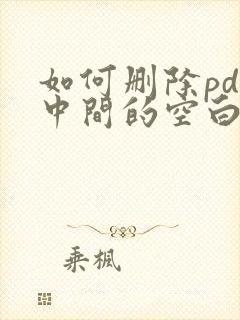 如何删除pd
中間的空白
乘楓